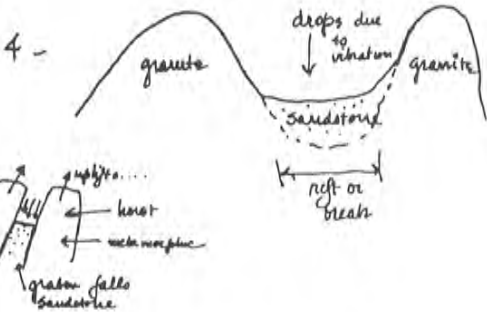 4 -
drops due
to
vibration
granite
granite
sandstone
rift or
break
uplifts....
horst
metamorphic
graben falls
sandstone